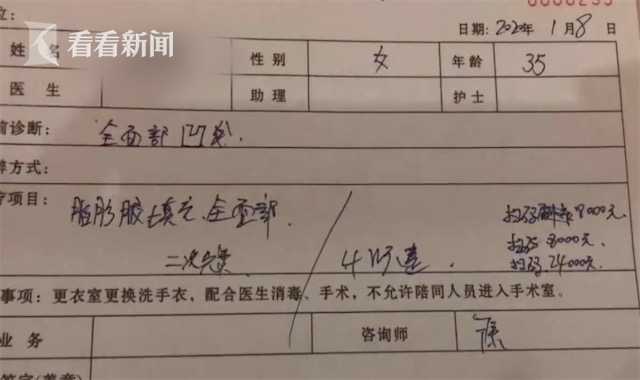 看看新闻
位:
0000299
日期: 2020年 1月8日
姓名 性别 女 年龄 35
医生 助理 护士
前诊断: 全面部凹陷.
醉方式:
疗项目: 脂肪胶填充 全面部
扫码 8000元
扫码 8000元.
二次 / 4 扫码 24000元
事项: 更衣室更换洗手衣, 配合医生消毒、手术, 不允许陪同人员进入手术室。
业务 咨询师
签字(盖章)